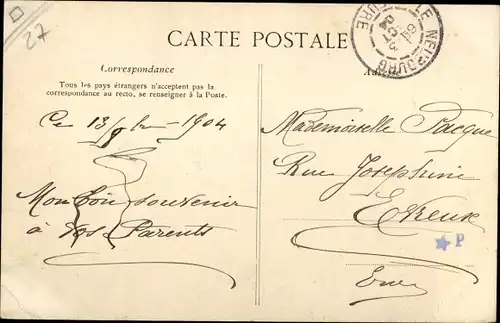 27
CARTE POSTALE
LE NEUBOURG
EURE
Correspondance
Tous les pays étrangers n'acceptent pas la
correspondance au recto, se renseigner à la Poste.
Ce 1904
Mon bon souvenir
à vos Parents
Mademoiselle Pacque
Rue Joséphine
Evreux
Eure
P